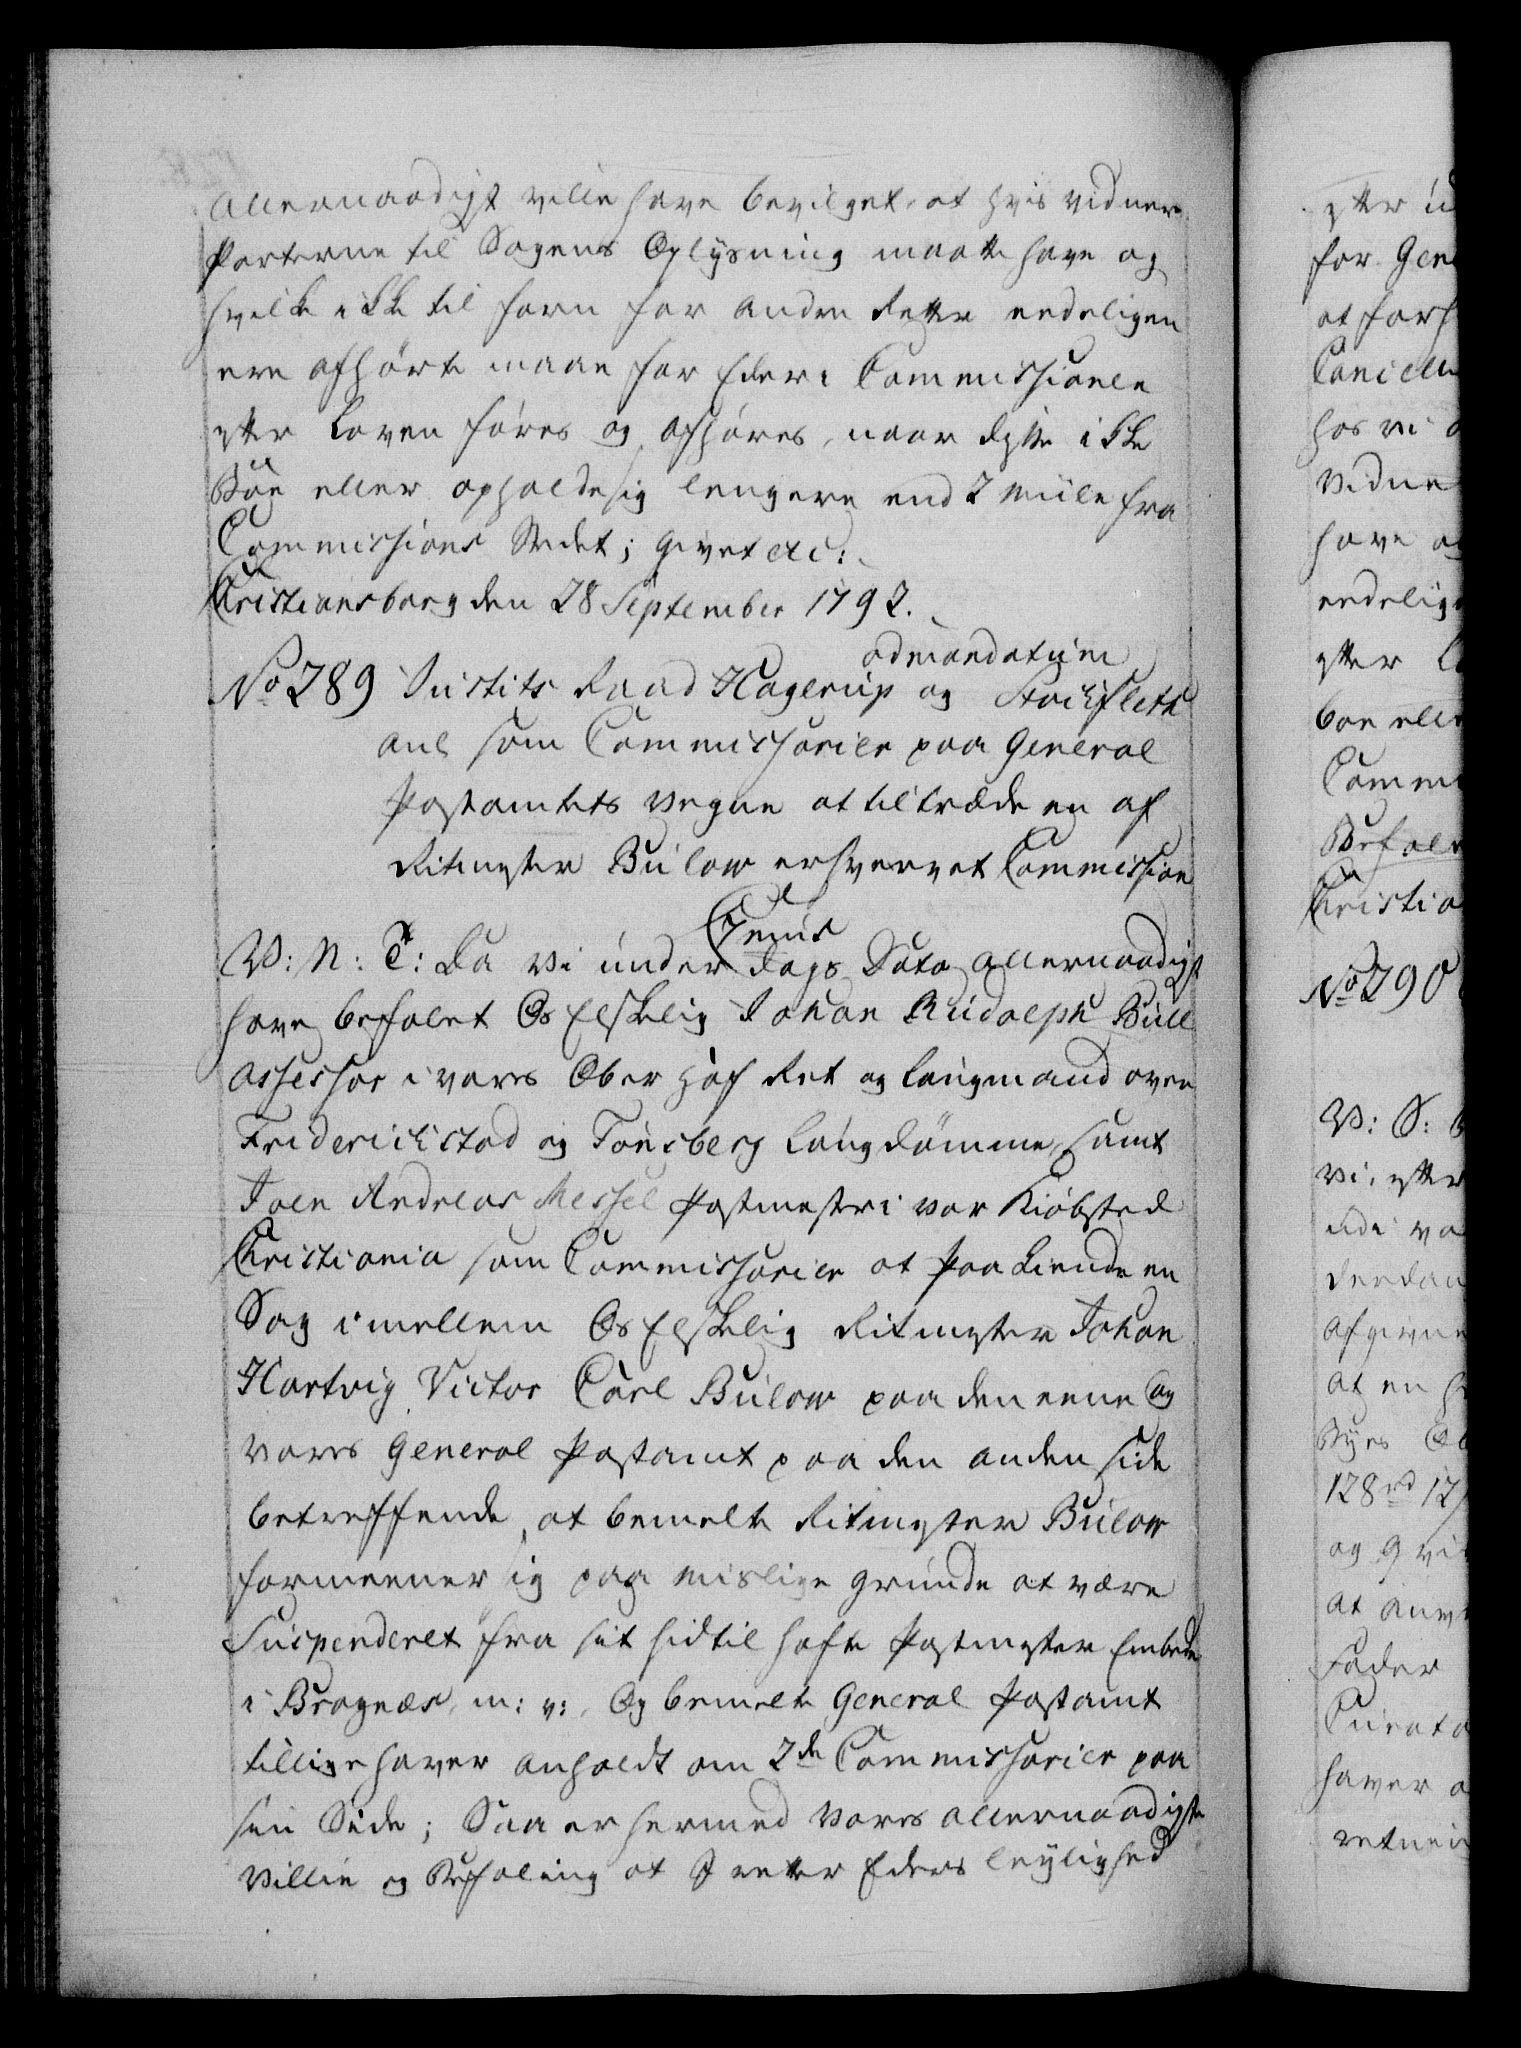 Allernaadigst ville have bevilget, at hvis vidner
Parterne til Sagens Oplÿsning maatte have og
hvilke ikke til forn for andre Rette endeligen
ere afhørte maae for Eder i Commissionen
efter Loven føres og afhøres, naar disse ikke
Boe eller opholde sig lengere end 2 Miile fra
Commissions Stedet; Givet etc:
Christiansborg den 28 September 1792.
ad mandatum
No 289 Justits Raad Hagerup og Stockfleth
anl som Commissarier paa General
Postamtets Vegne at tiltræde en af
Ritmester Bülow erhvervet Commission
V: N: T: Da Vi under Dags Dato Allernaadigst
have befalet Os Elskelig Johan Rudolph Bull
Assessor i vores Ober Hof Ret og Laugmand over
Friderichstad og Tønsberg Laugdømme, samt
Joen Andreas Messel Postmester i vor Kiøbsted
Christiania som Commissarier at paa Kiende en
Sag imellem Os Elskelig Ritmester Johan
Hartvig Victor Carl Bülow paa den eene og
vores General Postamt paa den anden side
betreffende, at bemelte Ritmester Bülow
formeener sig paa mislige grunde at være
Suspenderet fra sit hidtil hafte Postmester Embede
i Bragnæs, m: v: Og bemelte General Postamt
tillige haver anholdt om 2de Commissarier paa
sin Side; Saa er hermed Vores allernaadigste
Villie og Befaling at I retter Eders leÿlighed
for Gene
at forh
hos vi
Vidne
have
endelig
efter
boe elle
Comm
Befale
Christia
No 290
V: S:
Vi, efter
Afgivne
at en
Byes
128rd 12
at
Fader
haver